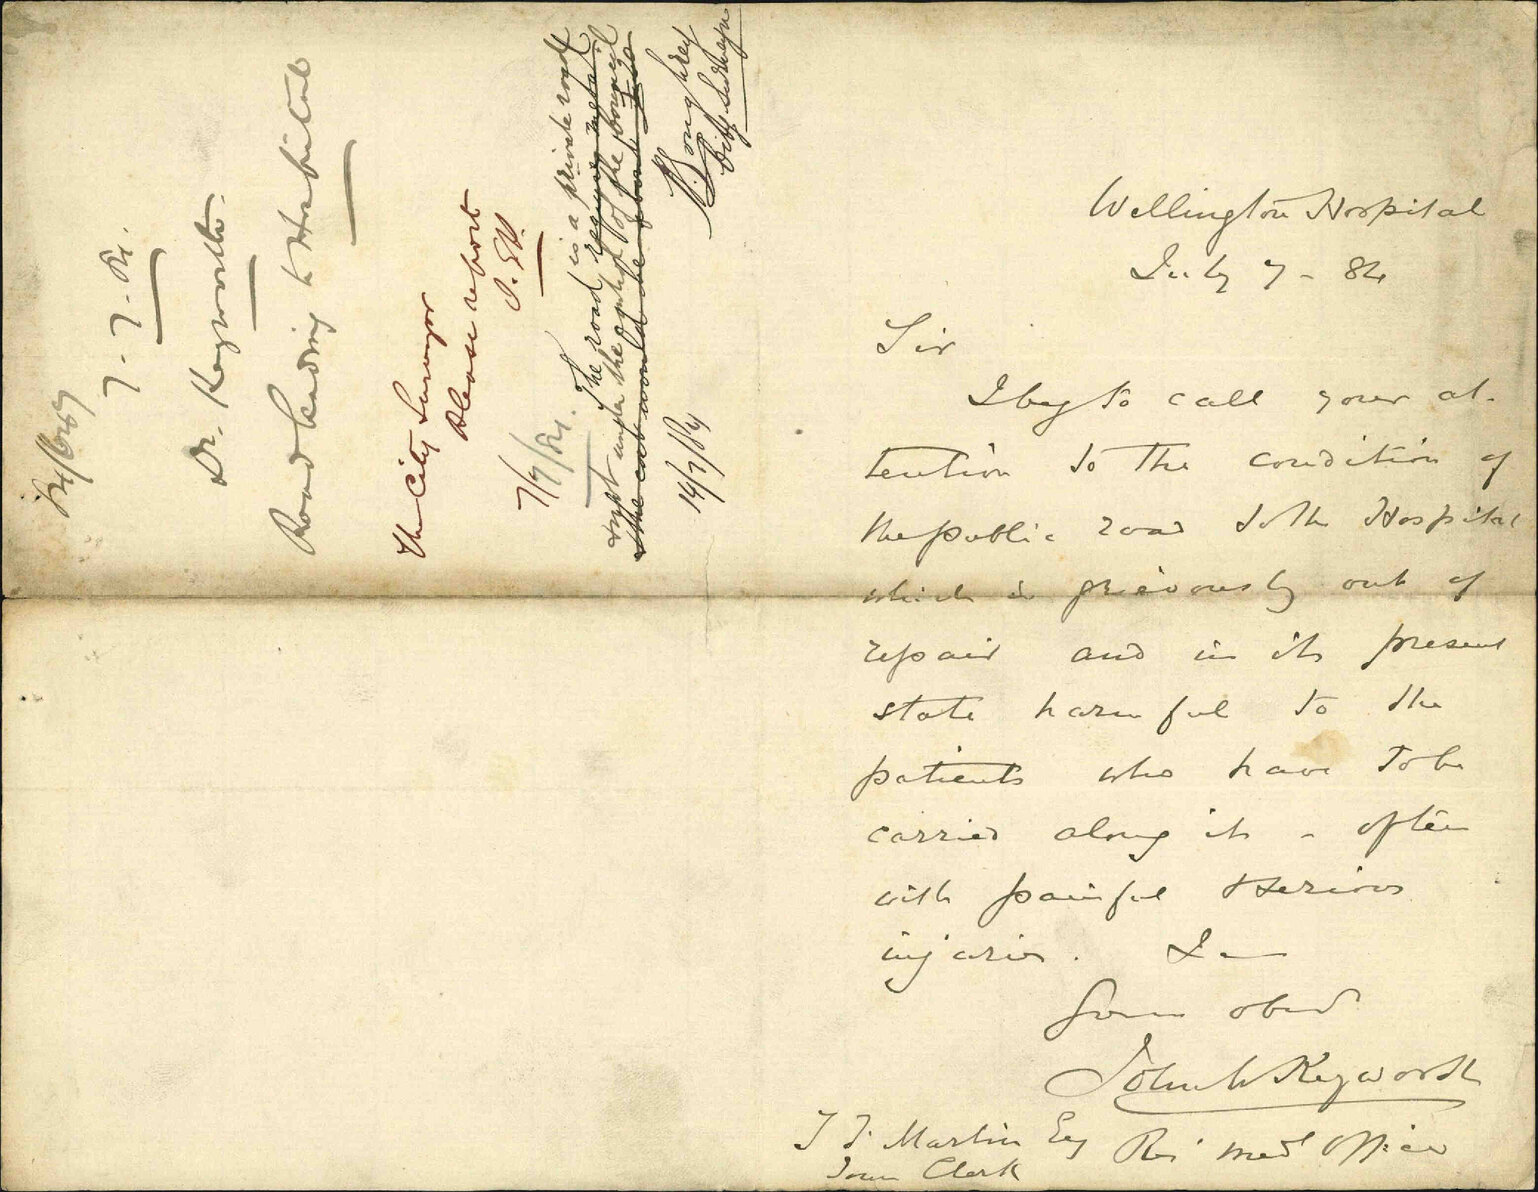 7-7-84.
Dr. Keyworth.
Road leading to Hospital
The City Surveyor
Please report
7/7/84.
The road is a private road &
not under the control of the Council
14/7/84
City Surveyor
Wellington Hospital
July 7 - 84
Sir
I beg to call your at-
tention to the condition of
the public road to the Hospital
which is grievously out of
repair and in its present
state harmful to the
patients who have to be
carried along it - often
with painful & serious
injuries. I am
Your obed
John W Keyworth
J. J. Martin Esq Res' Med' Officer
Town Clerk